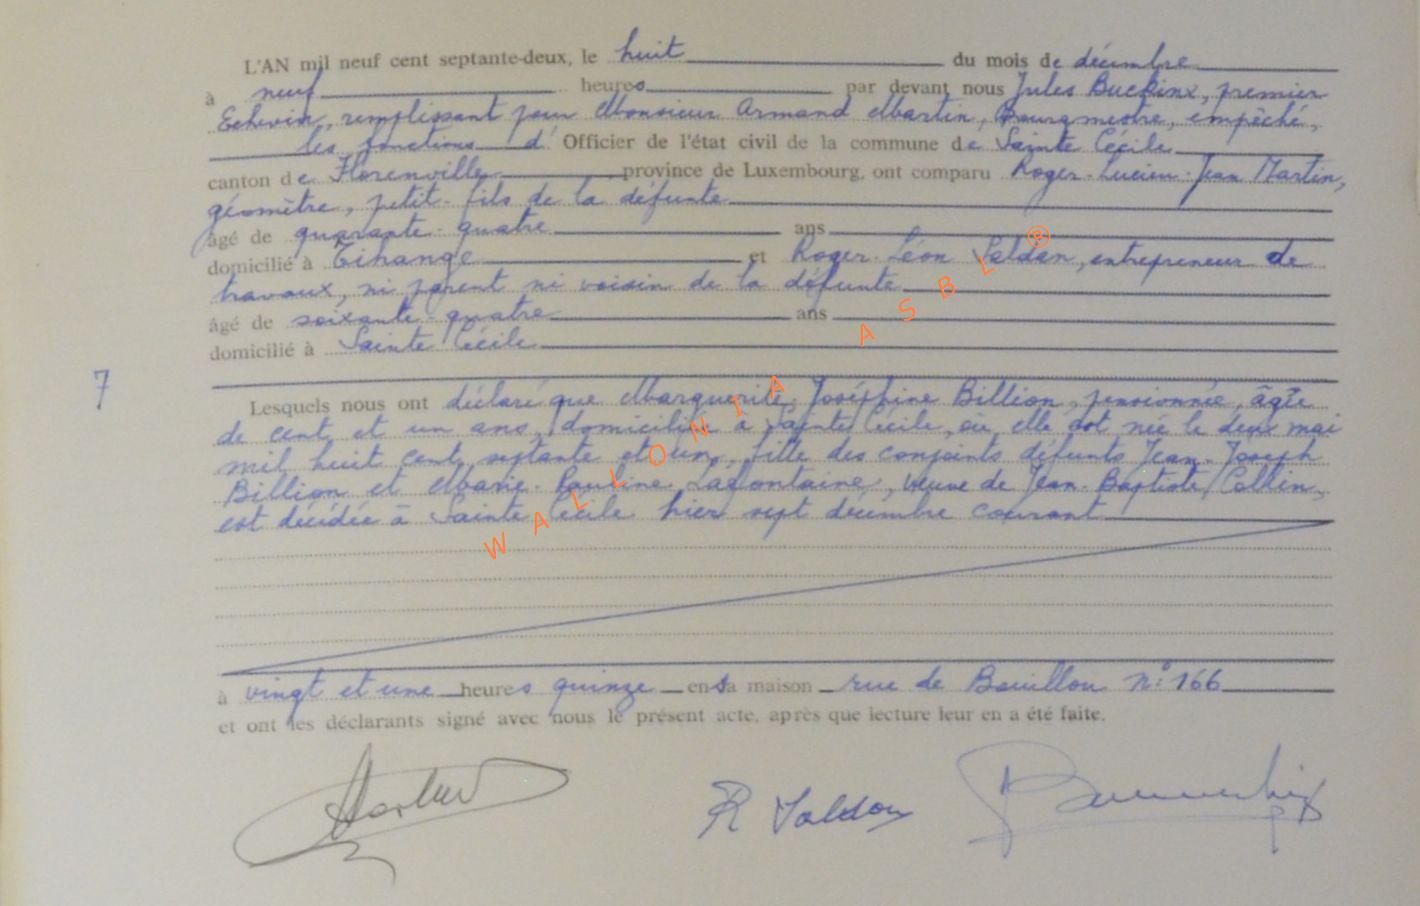 L'AN mil neuf cent septante-deux, le huit du mois de décembre
à neuf heures par devant nous Jules Buckinx, premier
Echevin, remplissant pour Monsieur Armand Martin, Bourgmestre, empêché,
les fonctions d' Officier de l'état civil de la commune de Sainte Cécile
canton de Florenville province de Luxembourg, ont comparu Roger-Lucien-Jean Martin,
géomètre, petit-fils de la défunte
âgé de quarante-quatre ans
domicilié à Tihange et Roger-Léon Saldon, entrepreneur de
travaux, ni parent ni voisin de la défunte
âgé de soixante-quatre ans
domicilié à Sainte Cécile
7
Lesquels nous ont déclaré que Marguerite Joséphine Billion, pensionnée, âgée
de cent et un ans, domiciliée à Sainte Cécile, où elle est née le deux mai
mil huit cent septante et un, fille des conjoints défunts Jean-Joseph
Billion et Marie-Pauline Lafontaine, veuve de Jean-Baptiste Collin,
est décédée à Sainte Cécile hier sept décembre courant
à vingt et une heures quinze en sa maison rue de Bouillon n° 166
et ont les déclarants signé avec nous le présent acte, après que lecture leur en a été faite.
R Saldon
WALLONIA ASBL ®